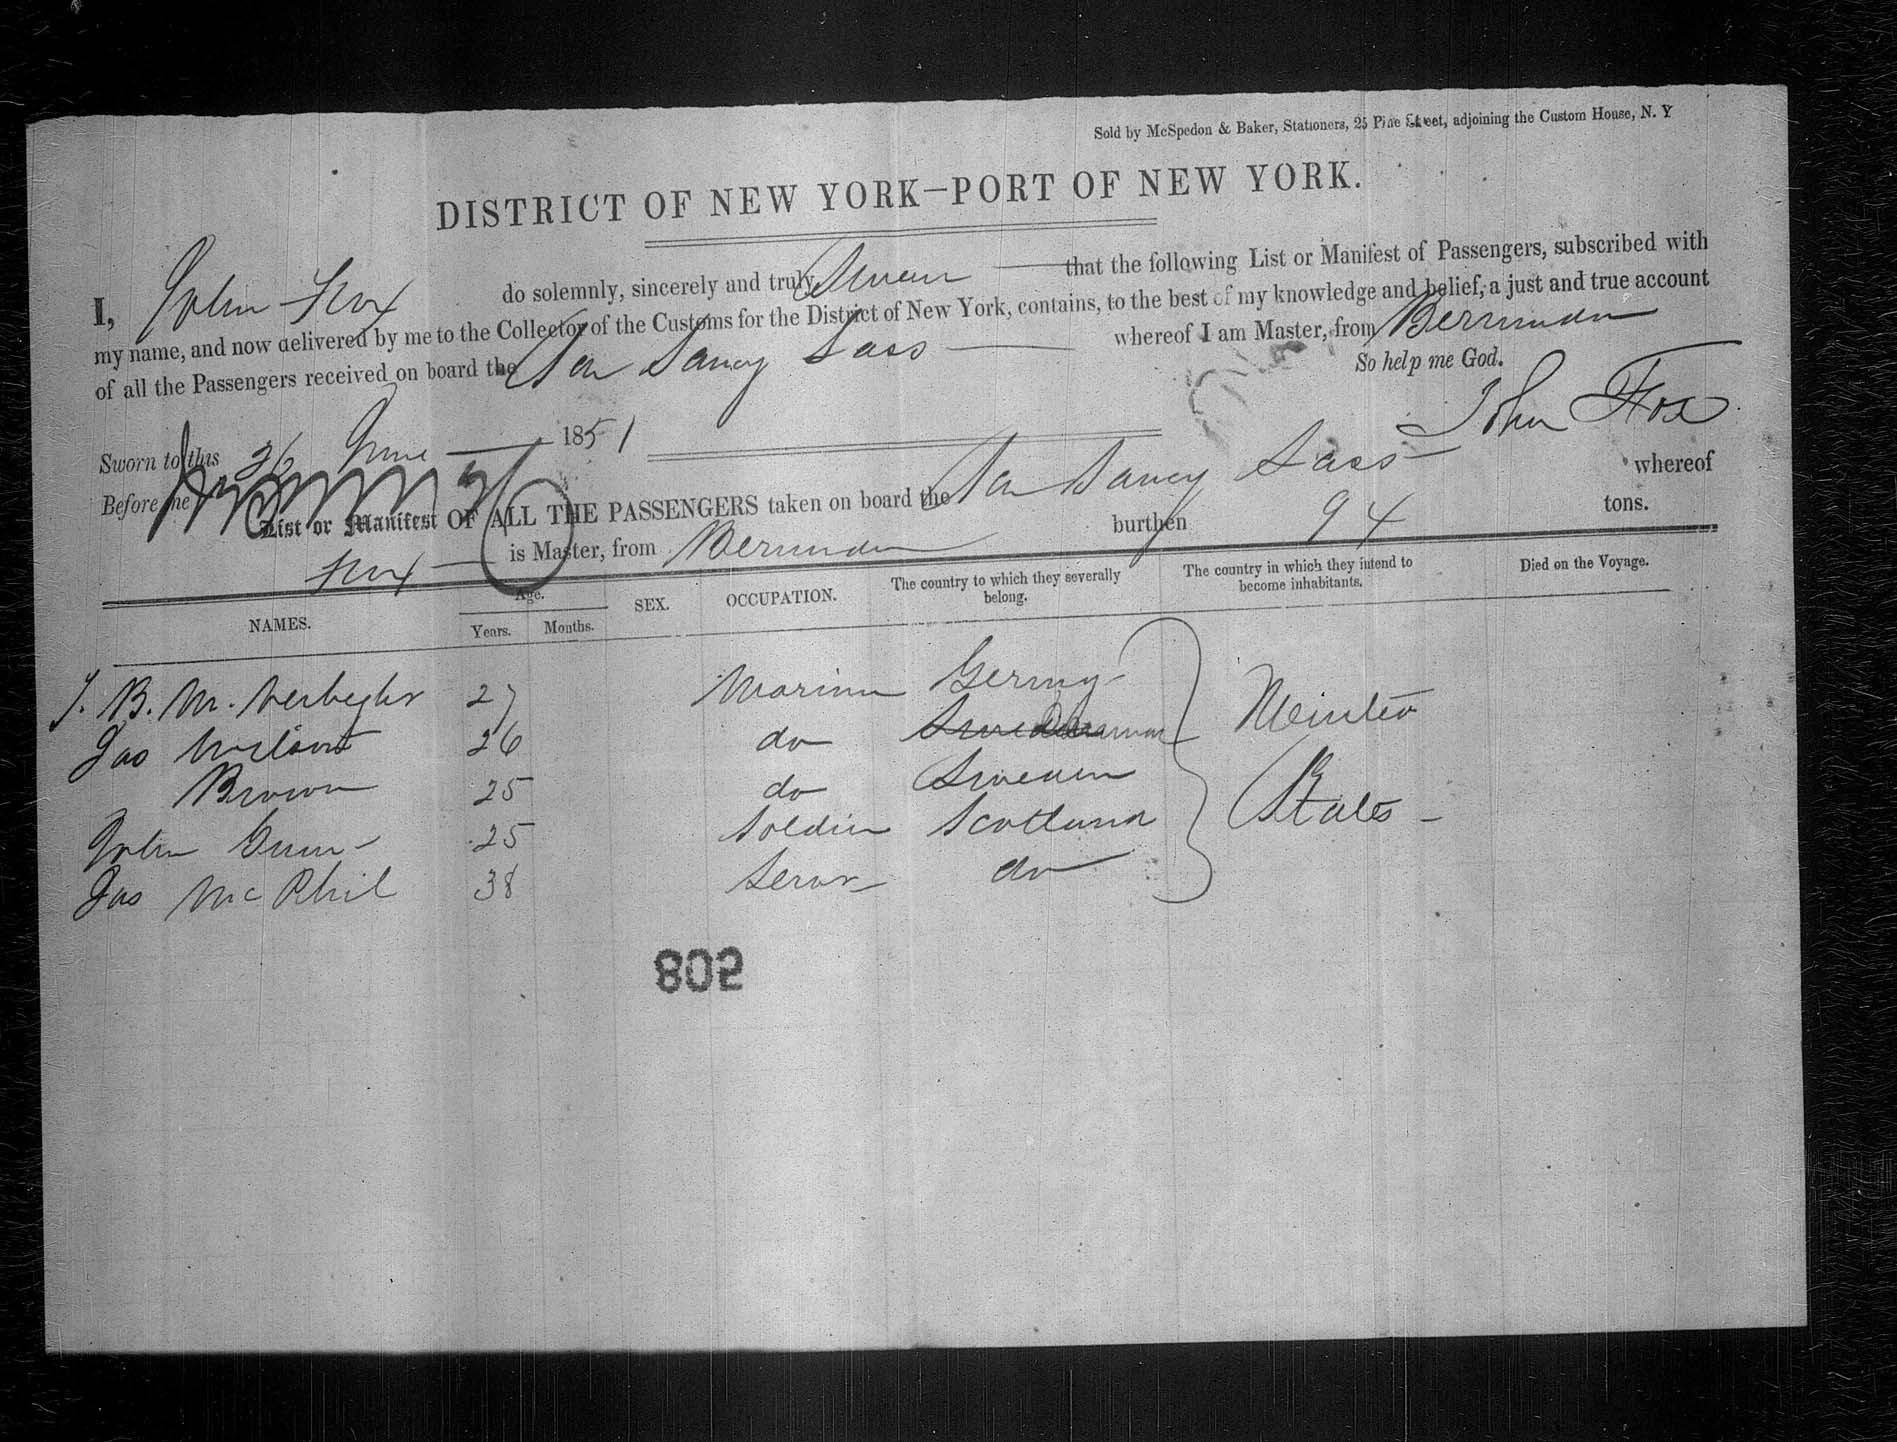 Sold by McSpedon & Baker, Stationers, 25 Pine Street, adjoining the Custom House, N. Y
DISTRICT OF NEW YORK—PORT OF NEW YORK.
I, John Fox do solemnly, sincerely and truly, Swear that the following List or Manifest of Passengers, subscribed with
my name, and now delivered by me to the Collector of the Customs for the District of New York, contains, to the best of my knowledge and belief, a just and true account
of all the Passengers received on board the Saucy Lass whereof I am Master, from Bermuda
So help me God.
Sworn to this 26 June 1851
John Fox
Before me
List or Manifest OF ALL THE PASSENGERS taken on board the Saucy Lass whereof
Fox is Master, from Bermuda burthen 94 tons.
NAMES. Age. Years. Months. SEX. OCCUPATION. The country to which they severally belong. The country in which they intend to become inhabitants. Died on the Voyage.
B. M. 27 Marine Germy
Jas Wilson 26 do
Brown 25 do Sweden
John Gunn 25 Soldier Scotland States
Jas McPhil 38 Serv do
508